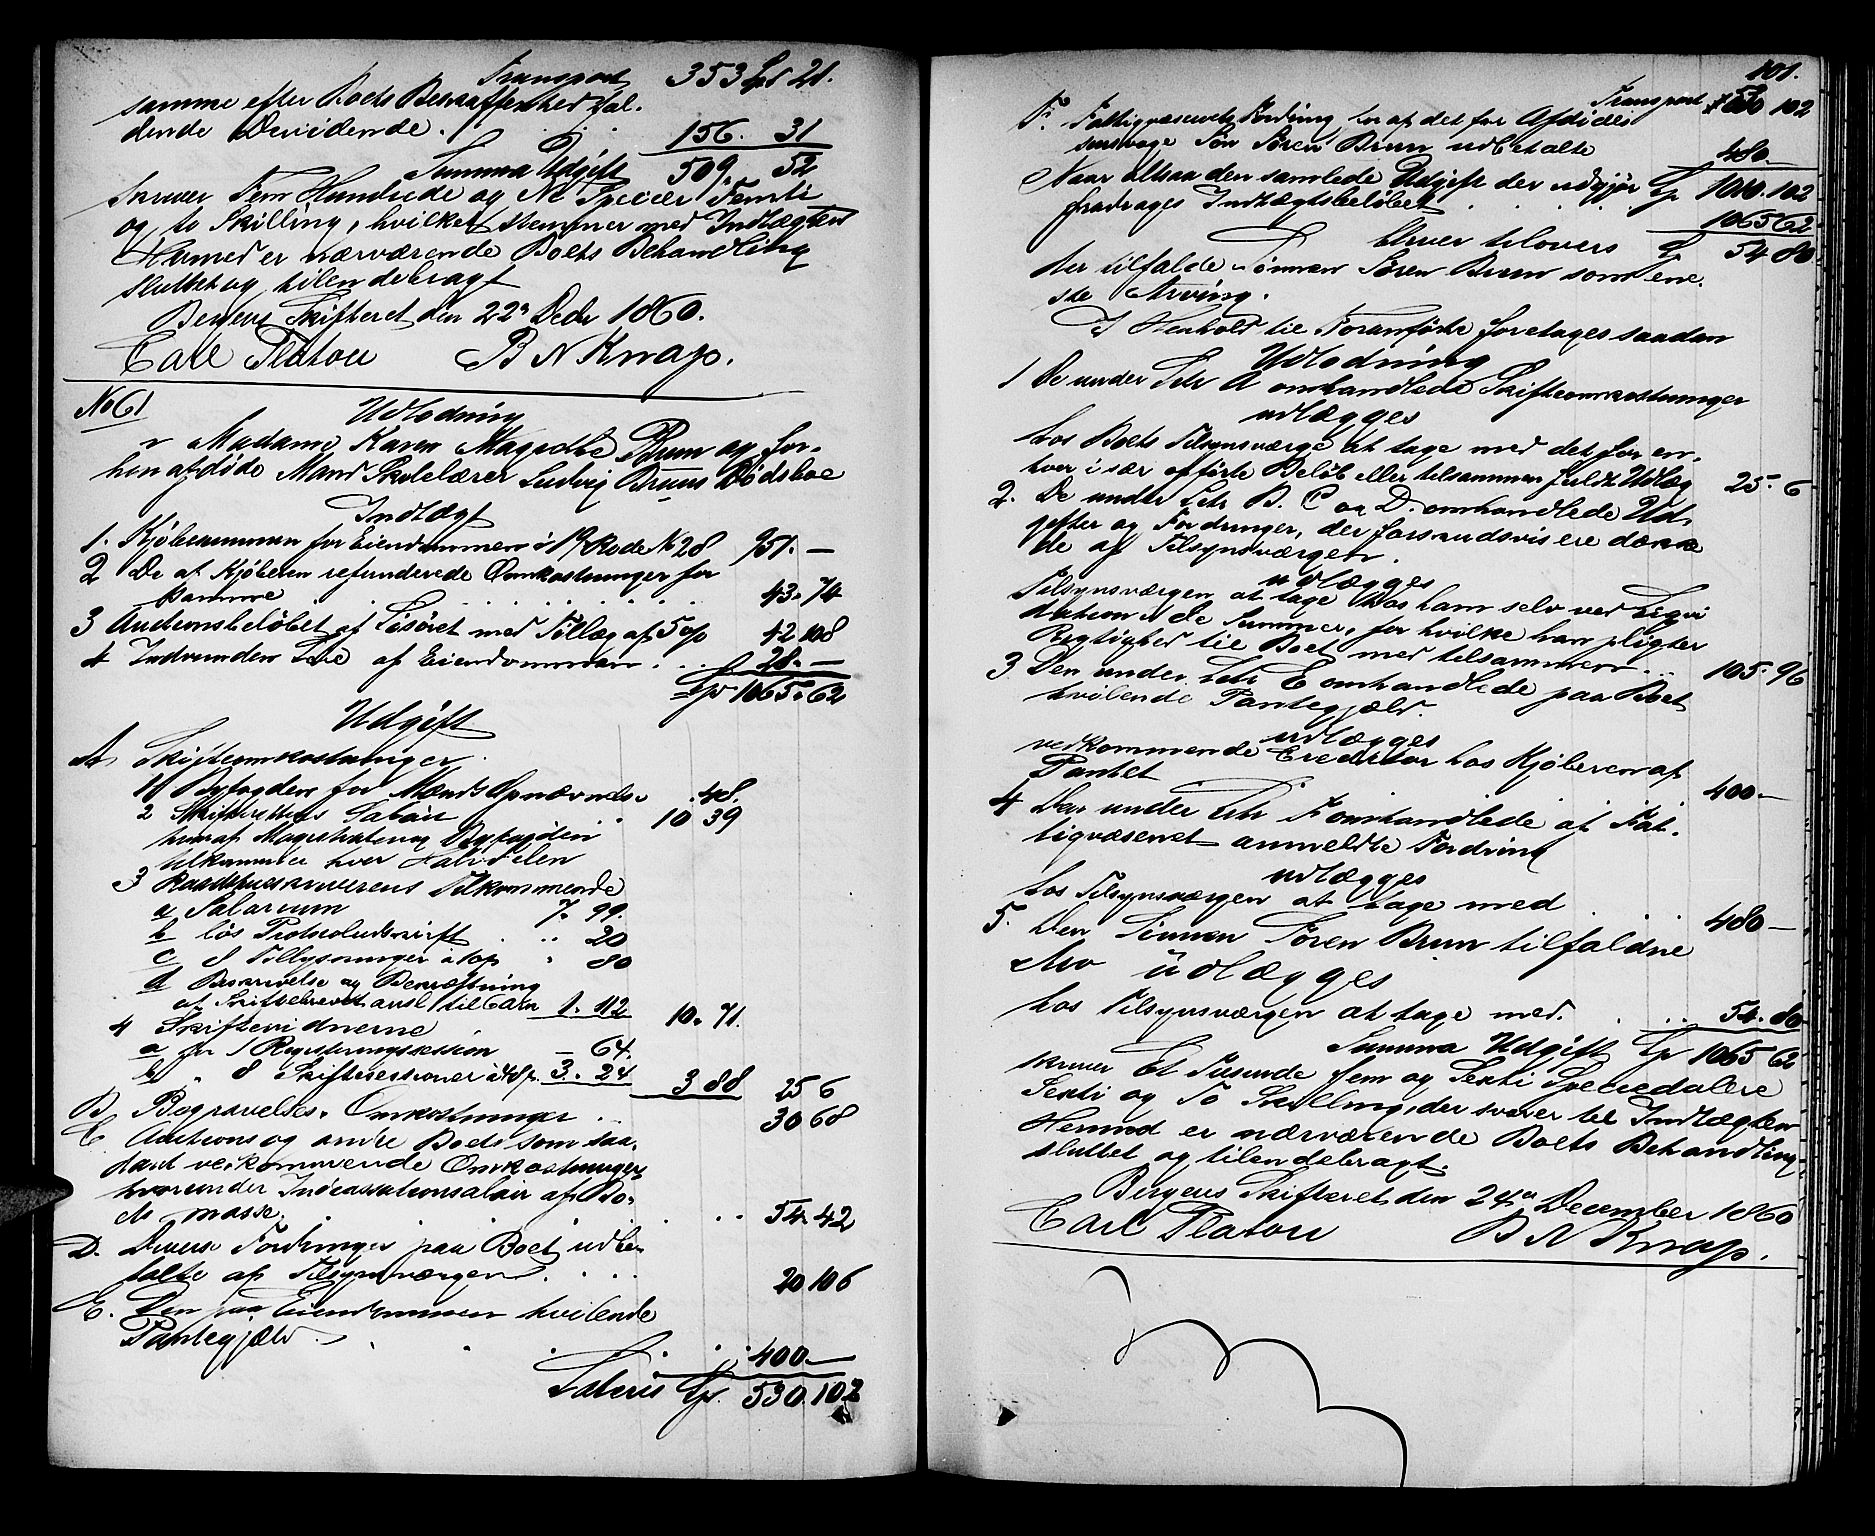 Transport 353 Spd 21.
samme efter Boets Beskaffenhed fal-
dende Dividende. . . . 156. 31
Summa Udgift 509. 52
skriver Fem Hundrede og Ni Specier Femti
og to Skilling, hvilket stemmer med Indtægten
Hermed er nærværende Boets Behandling
sluttet og tilendebragt
Bergens Skifteret den 22de Decbr 1860.
Carl Platou B N Knap.
No 61
Udlodning
i Madame Karen Magrethe Brun og for-
hen afdøde Mand Skolelærer Ludvig Bruns Dødsboe
Indtægt
1. Kjøbesummen for Eiendommen i 19 Rode No 28 951. —
2 De af Kjøberen refunderede Omkostninger for
samme 43. 74
3 Auctionsbeløbet af Løsøret med Tillæg af 5 op 42 108
4 Indvunden Leie af Eiendommen . . . 28. —
Spd 1065. 62
Udgift
A Skifteomkostninger.
1 Byfogden for Mænds Opnævnelse . 48.
2 Skifterettens Salair 10 39
hvoraf Magistraten og Byfogden
tilkommer hver Halvdelen
3 Raadstueskriverens Tilkommende
a Salarium 7. 99.
b løs Protocoludskrift . . 20
c 8 Tillysninger à 10 p . 80
d Beskrivelse og Bekræftning
af Skiftebrevet 1. 112 10. 71.
4 Skiftevidnerne
a for 1 Registreringssession — 64.
b " 8 Skiftesessioner à 48 p. 3. 24 3 88 25 6
B Begravelses Omkostninger . . 30 68
C Auctions og andre Boet som saa-
dant vedkommende Omkostninger
hvorunder Incassationsalair af Bo-
ets masse. . . . 54. 42
D. Diverse Fordringer paa Boet udbe-
talte af Tilsynsværgen . . . 20 106
E. Den paa Eiendommen hvilende
Pantegjæld . . . 400 —
Lateris Spd. 530. 102
101.
Transport 530 102
F. Fattigvæsenets Fordring for af det for Afdødes
sinsvage Søn Søren Brun udbetalte 480 —
Naar altsaa den samlede Udgift der udgjør Sp 1010. 102
fradrages Indtægtsbeløbet . . . 1065 62
bliver tilovers Sp 54 80
der tilfalde Sønnen Søren Brun som ene-
ste Arving.
I Henhold til Foranførte foretages saadan
Udlodning
1 De under Litr A omhandlede Skifteomkostninger
udlægges
hos Boets Tilsynsværge at tage med det for en-
hver især opførte Beløb eller tilsammen fuldt Udlæg 25. 6
2. De under Litr B. C og D. omhandlede Ud-
gifter og Fordringer, der forskudsvis ere dække-
de af Tilsynsværgen.
udlægges
Tilsynsværgen at tage hos ham selv ved Liqvi
dation i de Summer, for hvilke han pligter
Rigtighed til Boet med tilsammen . . . 105. 96
3 Den under Litr E omhandlede paa Boet
hvilende Pantegjæld.
udlægges
vedkommende Creditor hos Kjøberen af
Pantet 400 —
4 Den under Litr F omhandlede af Fat-
tigvæsenet anmeldte Fordring
udlægges
hos Tilsynsværgen at tage med . . . 480 —
5. Den Sønnen Søren Brun tilfaldne
Arv udlægges
hos Tilsynsværgen at tage med. . . . 54. 80
Summa Udgift Sp 1065 62
skriver Et Tusinde fem og Sexti Speciedalere
Sexti og To Skilling, der svarer til Indtægten
Hermed er nærværende Boets Behandling
sluttet og tilendebragt.
Bergens Skifteret den 24de December 1860
Carl Platou B N Knap.